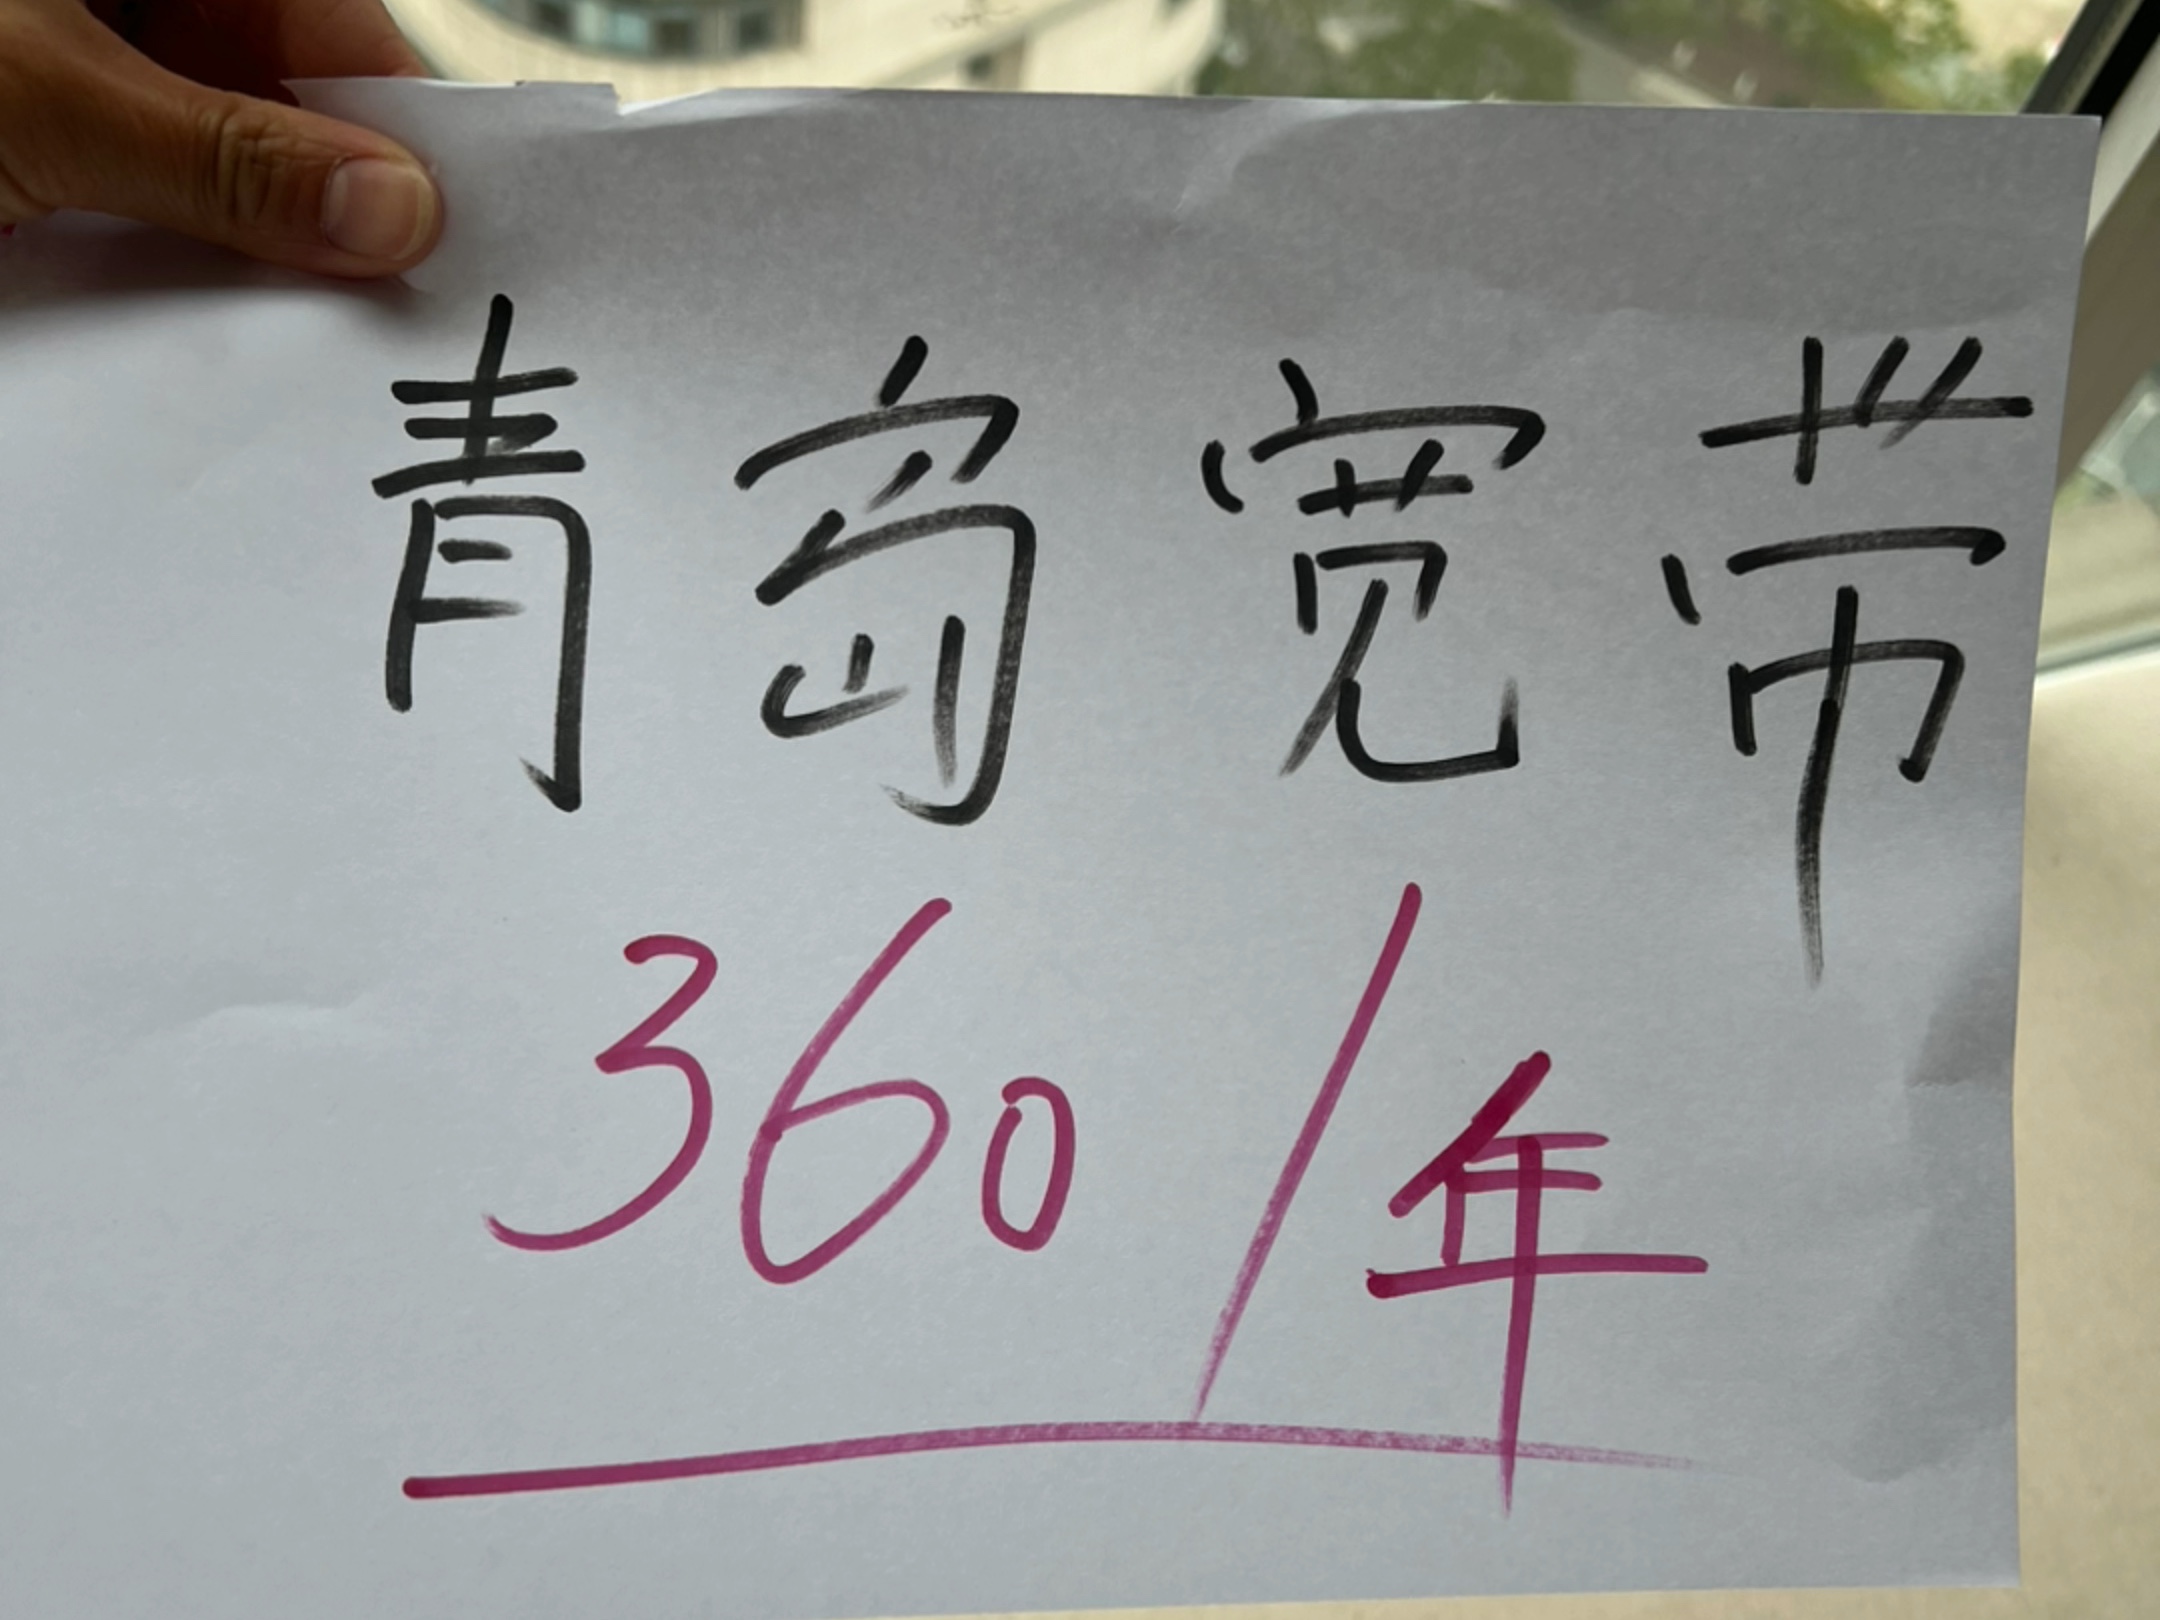 青岛宽带
360/年